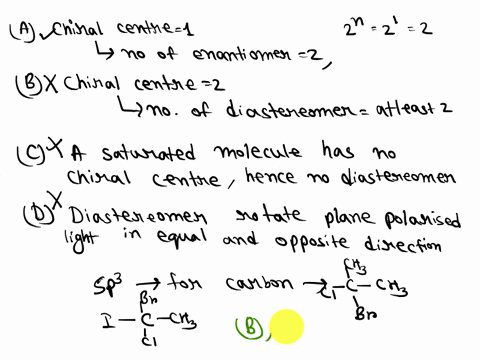 (A) ✓ Chiral centre=1 2ⁿ = 2¹ = 2
↳ no of enantiomer = 2,
(B) X Chiral centre = 2
↳ no. of diastereomer = atleast 2
(C) X A saturated molecule has no
chiral centre, hence no diastereomer
(D) X Diastereomer rotate plane polarised
light in equal and opposite direction
SP³ → for carbon → Cl-C-CH₃
CH₃
Br
Br
I-C-CH₃
Cl
(B),